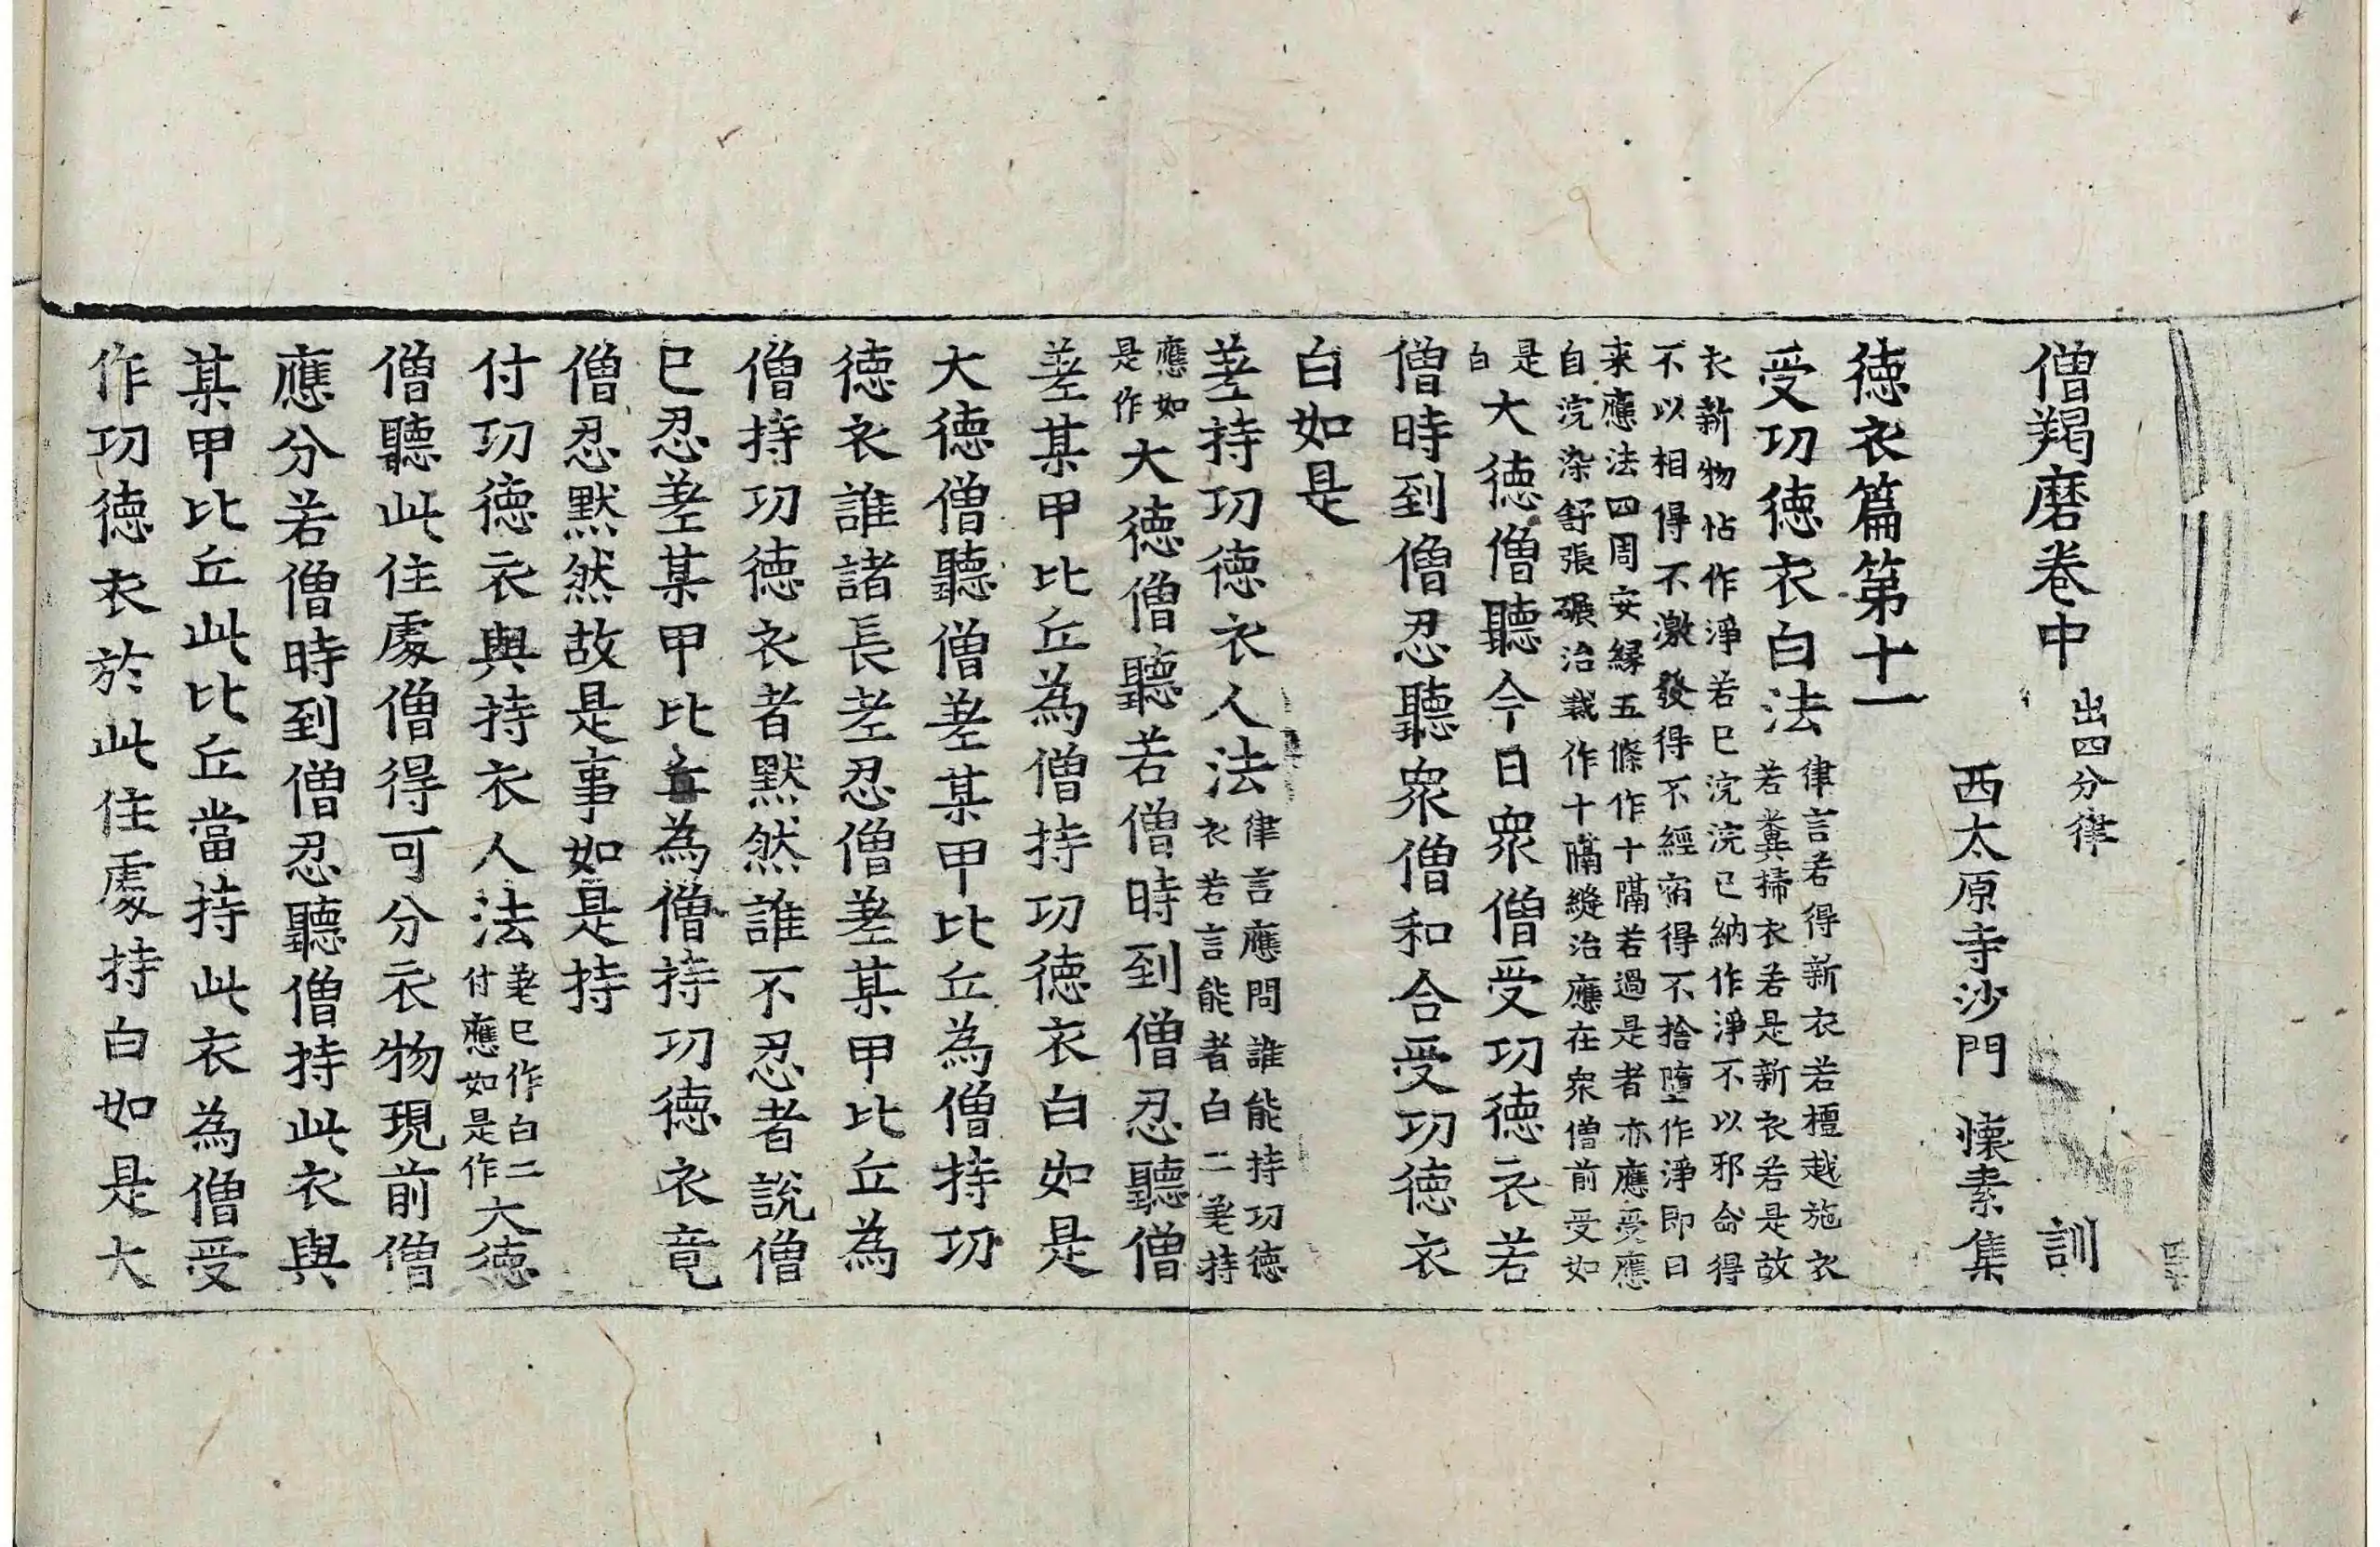 僧羯磨卷中 出四分律 訓
西太原寺沙門 懷素集
德衣篇第十一
受功德衣白法 律言若得新衣若檀越施衣
若糞掃衣若是新衣若是故
衣新物怗作淨若已浣浣已納作淨不以邪命得
不以相得不激發得不經宿得不捨墮作淨即日
来應法四周安縁五條作十隔若過是者亦應受應
自浣染舒張碾治裁作十隔縫治應在眾僧前受如
是
白 大德僧聽今日眾僧受功德衣若
僧時到僧忍聽眾僧和合受功德衣
白如是
差持功德衣人法 律言應問誰能持功德
衣若言能者白二差持
應如
是作 大德僧聽若僧時到僧忍聽僧
差某甲比丘為僧持功德衣白如是
大德僧聽僧差某甲比丘為僧持功
德衣誰諸長老忍僧差某甲比丘為
僧持功德衣者默然誰不忍者說僧
已忍差某甲比丘為僧持功德衣竟
僧忍默然故是事如是持
付功德衣與持衣人法 差已作白二
付應如是作 大德
僧聽此住處僧得可分衣物現前僧
應分若僧時到僧忍聽僧持此衣與
某甲比丘此比丘當持此衣為僧受
作功德衣於此住處持白如是大